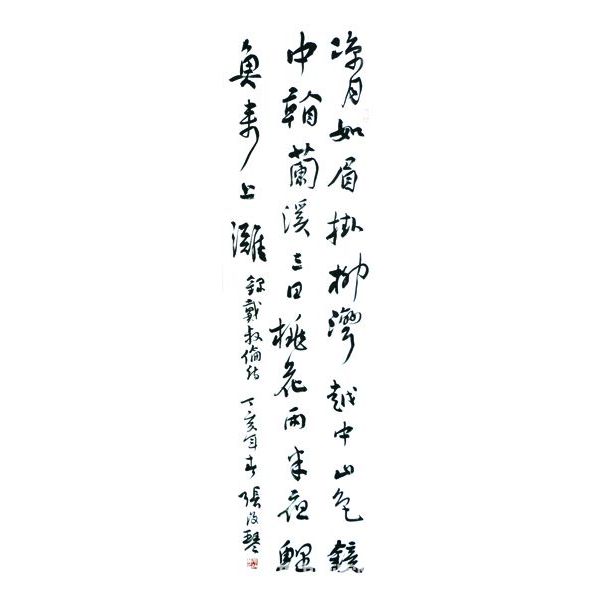 凉月如眉掛柳灣越中山色鏡
中看蘭溪三日桃花雨半夜鯉
魚來上灘 錄戴叔倫詩 丁亥年春 張改琴